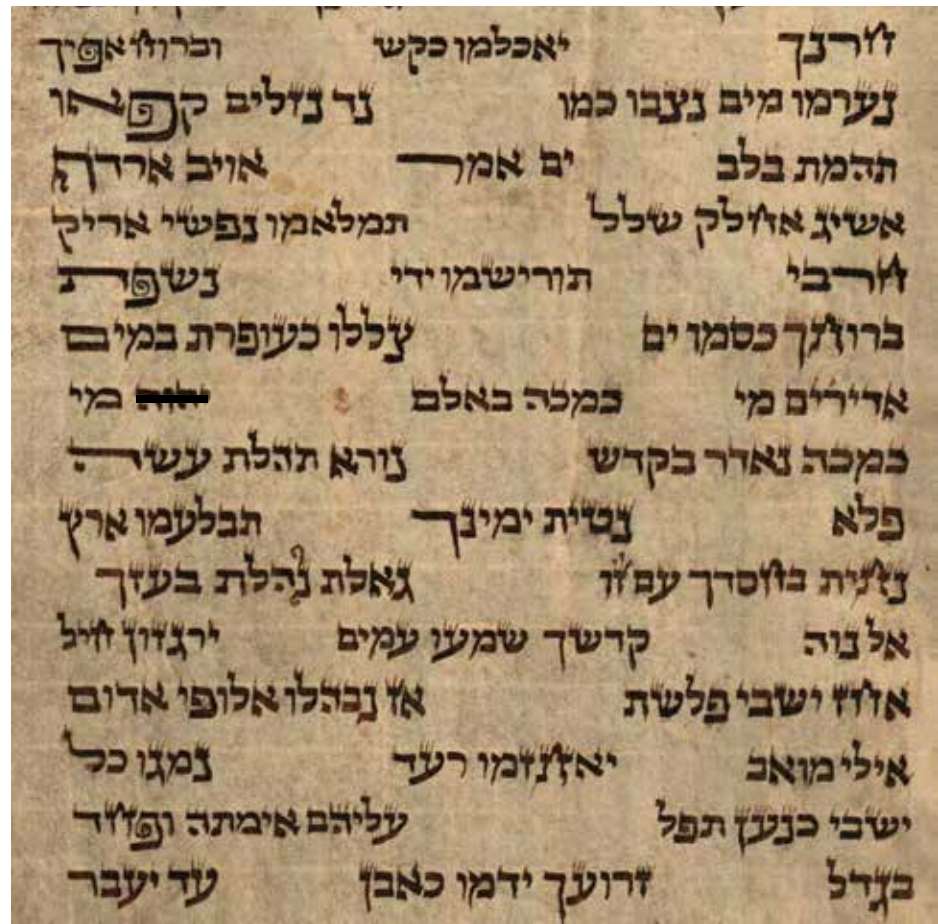 חרנך יאכלמו כקש וברוח אפיך
נערמו מים נצבו כמו נד נזלים קפאו
תהמת בלב ים אמר אויב ארדף
אשיג אחלק שלל תמלאמו נפשי אריק
חרבי תורישמו ידי נשפת
ברוחך כסמו ים צללו כעופרת במים
אדירים מי כמכה באלם מי
כמכה נאדר בקדש נורא תהלת עשה
פלא נטית ימינך תבלעמו ארץ
נחית בחסדך עם זו גאלת נהלת בעזך
אל נוה קדשך שמעו עמים ירגזון חיל
אחז ישבי פלשת אז נבהלו אלופי אדום
אילי מואב יאחזמו רעד נמגו כל
ישבי כנען תפל עליהם אימתה ופחד
בגדל זרועך ידמו כאבן עד יעבר